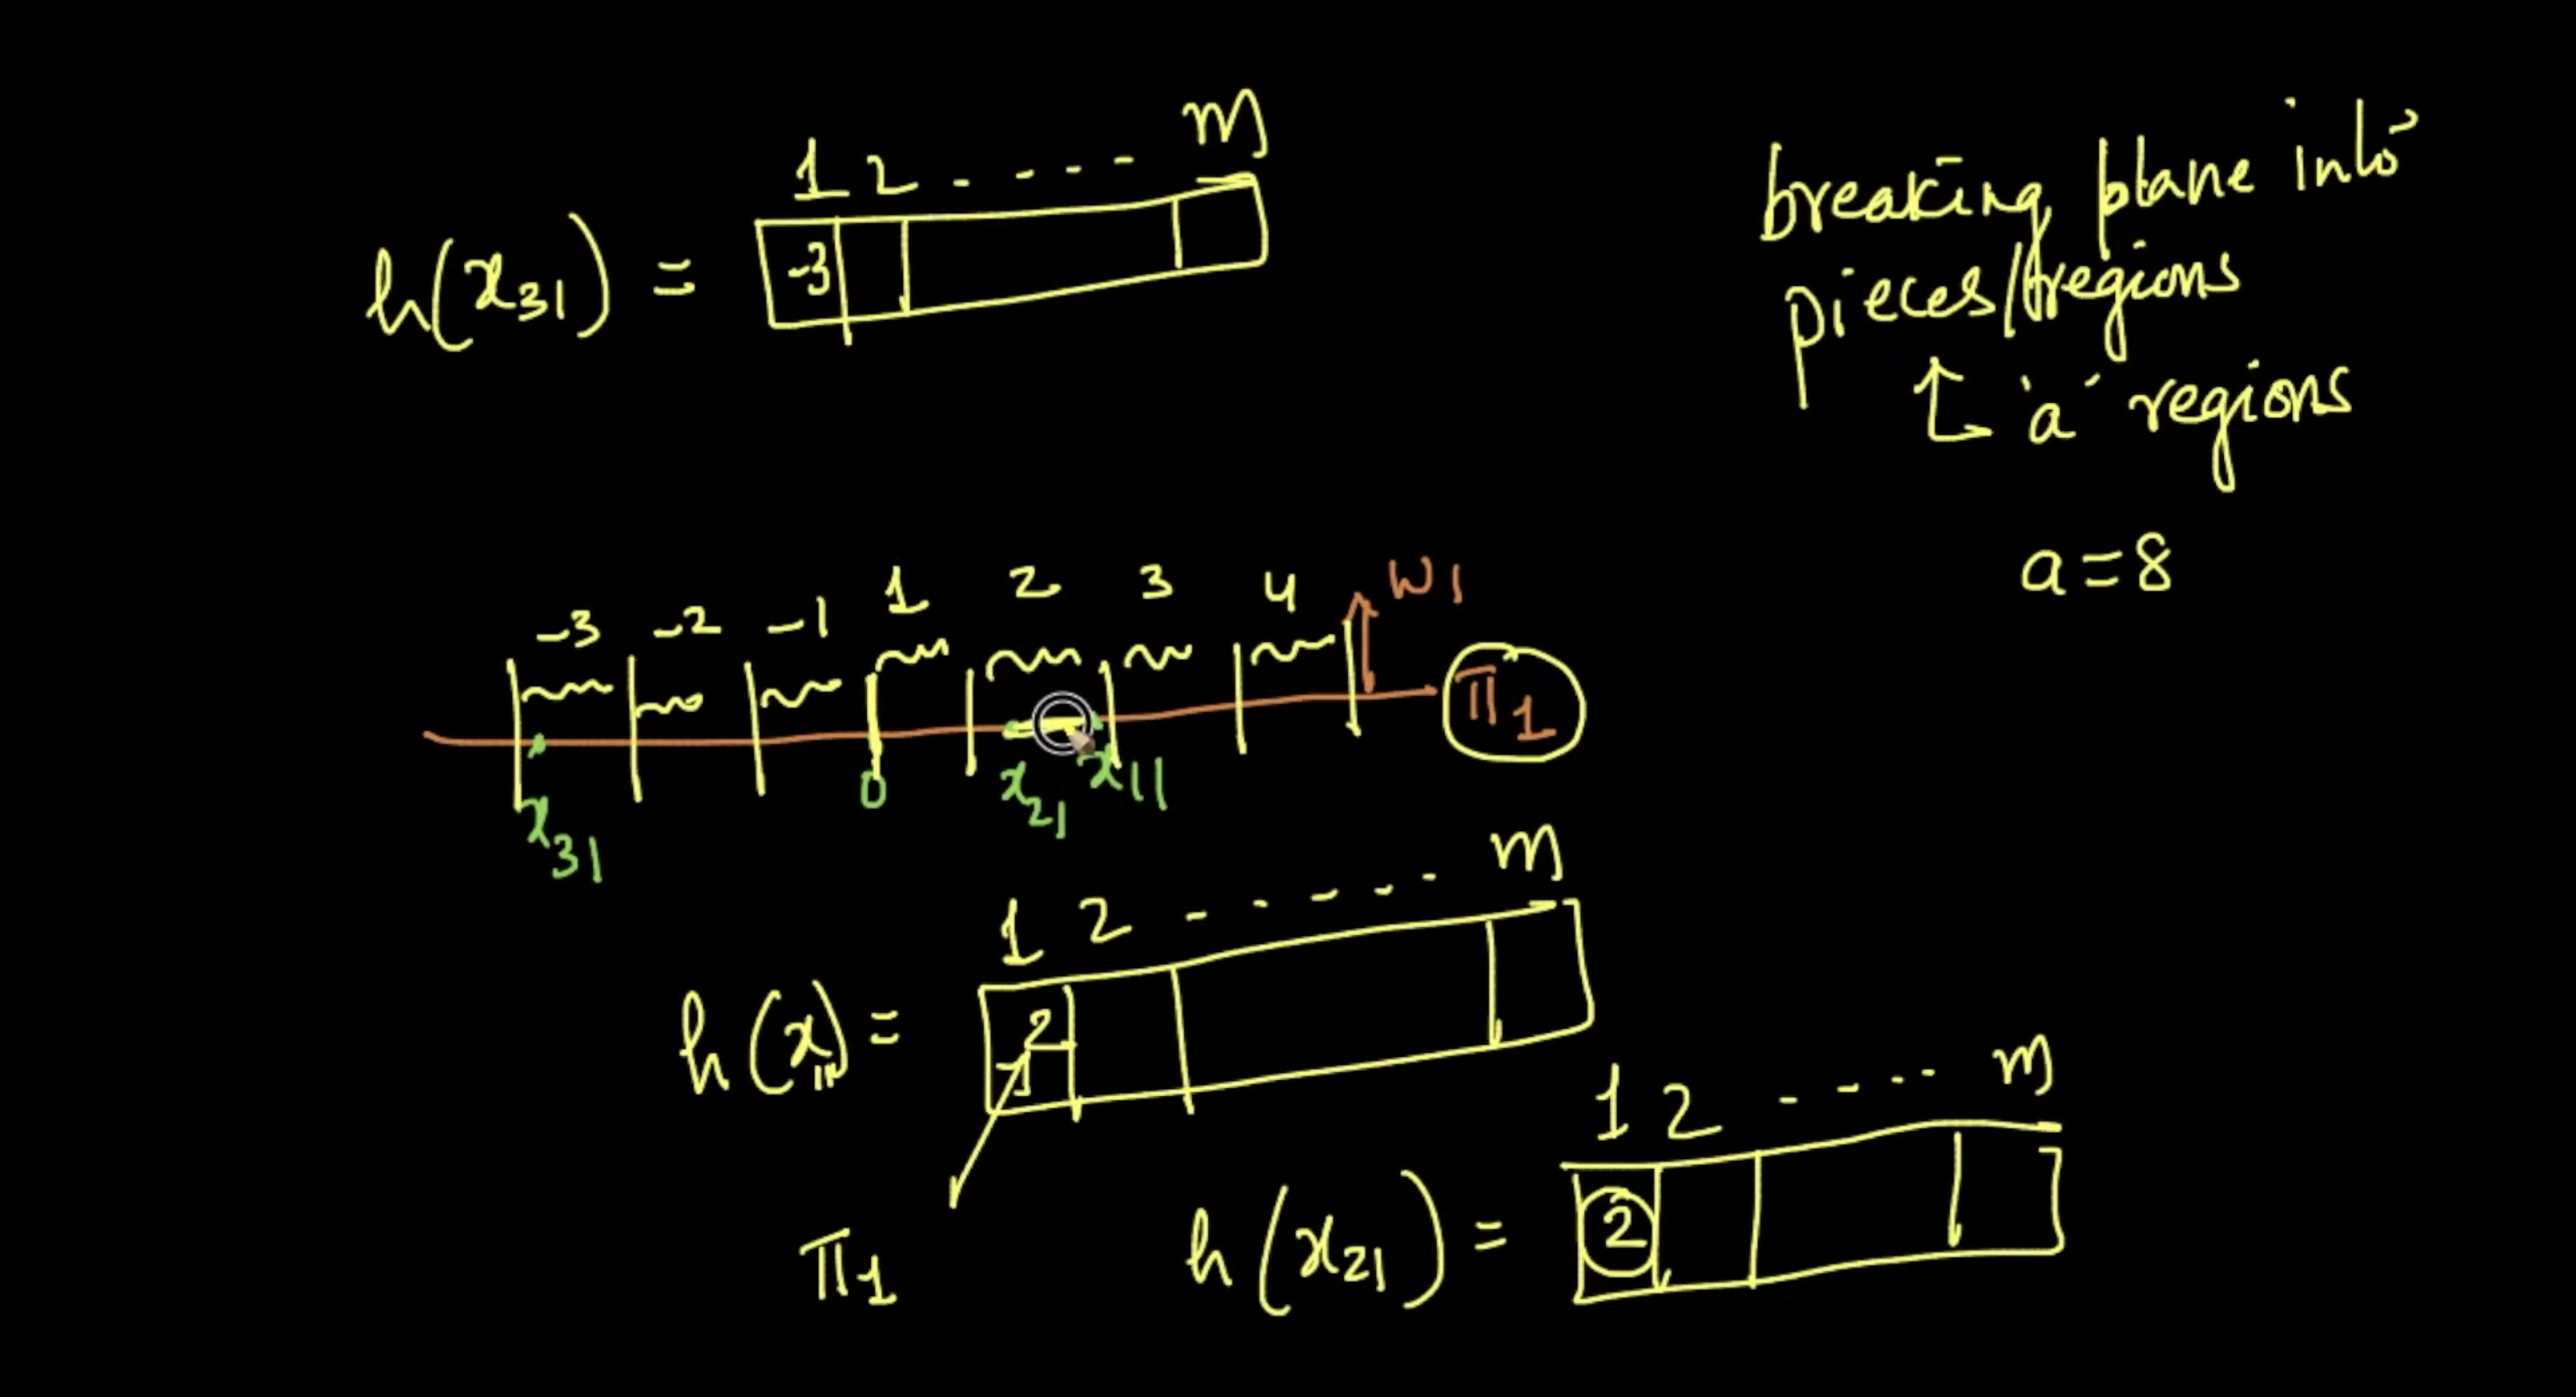 1 2 - - - - m
h(x31) = -3
breaking plane into
pieces/regions
↳ 'a' regions
a=8
-3 -2 -1 1 2 3 4 W1
π1
0 x21 x11
x31
1 2 - - - - - m
h(x11) = 2
π1
1 2 - - - - m
h(x21) = 2